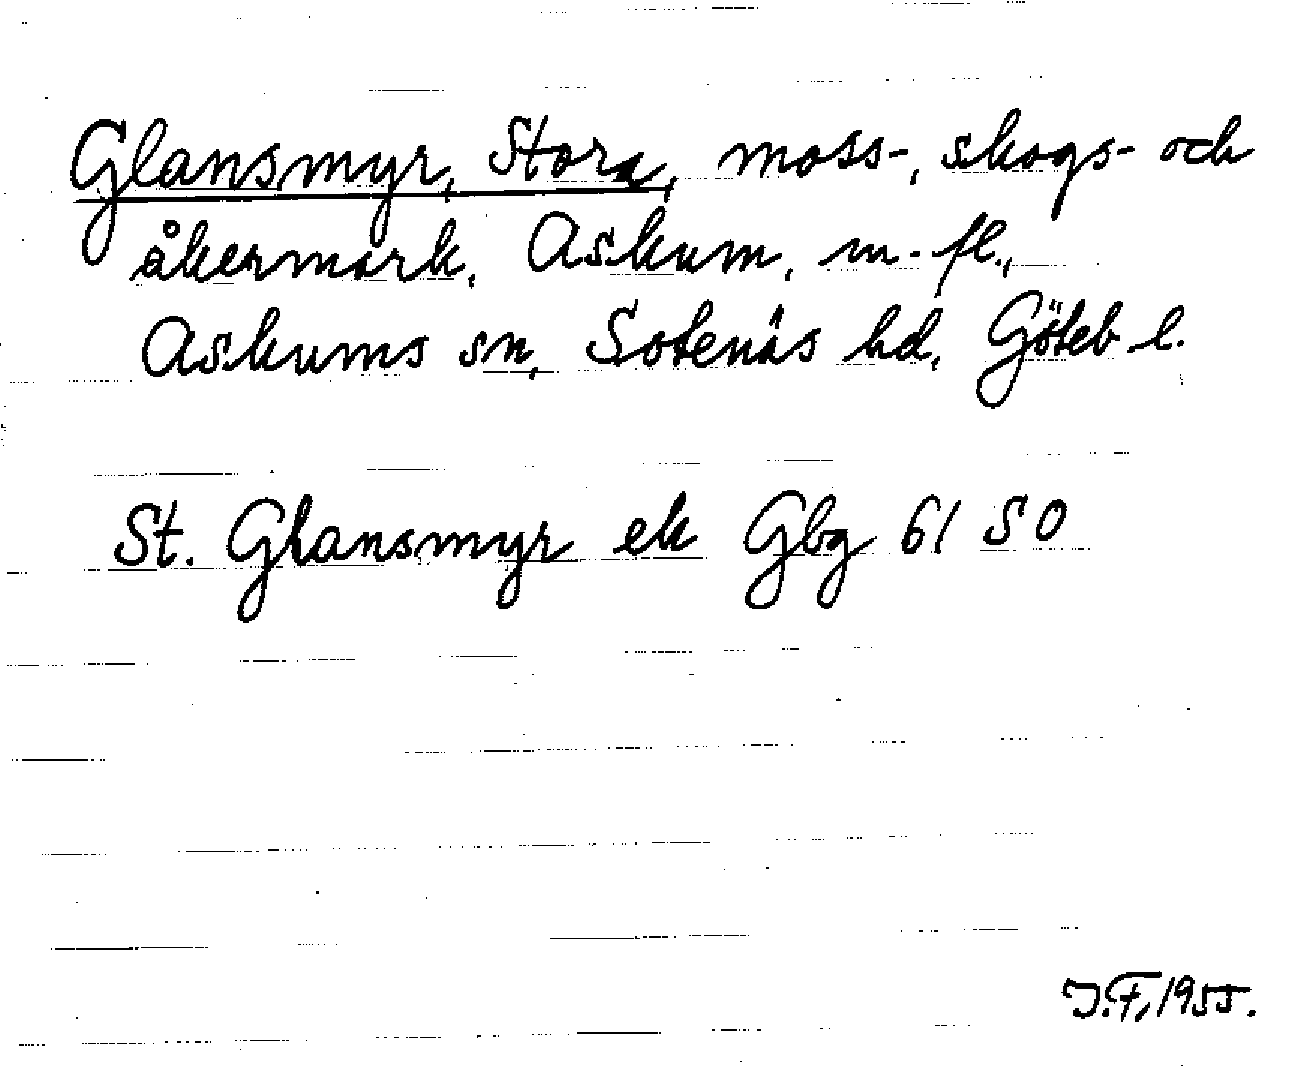 Glansmyr, Stora, moss-, skogs- och
åkermark, Askum, m. fl.,
Askums sn, Sotenäs hd, Göteb. l.
St. Glansmyr ek Gbg 61 SO
J.F, 1955.